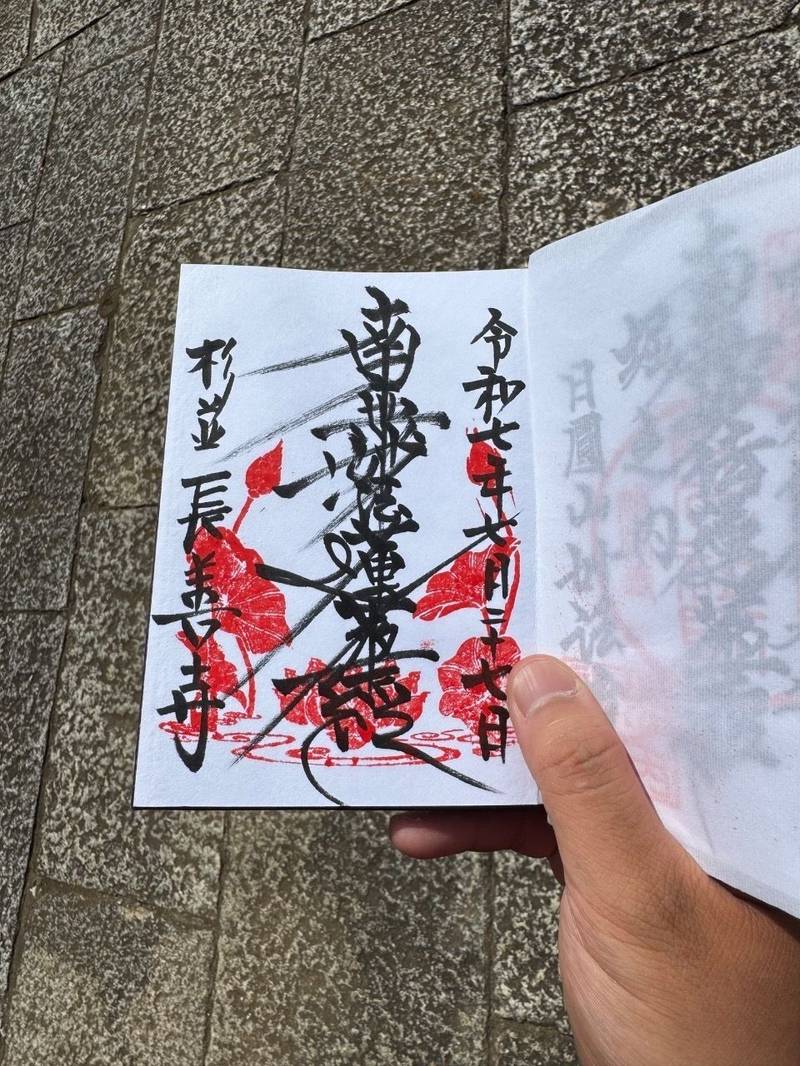 堀之内
日圓山妙法
令和七年七月二十七日
南無妙法蓮華經
杉並 長善寺